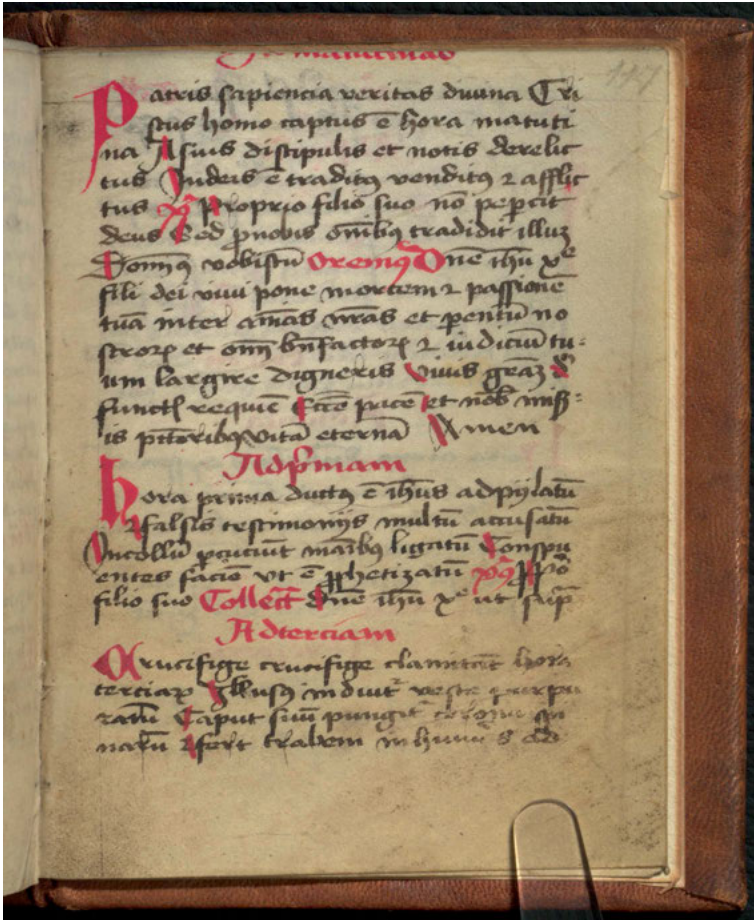 Ad matutinas
117
Patris sapiencia veritas diuina Cri
stus homo captus ē hora matuti
na A suis discipulis et notis derelic
tus Iudeis ē traditꝯ venditꝯ ⁊ afflic
tus Proprio filio suo nō peꝑcit
deus Sed ꝓ nobis om̄ibꝯ tradidit illuꝫ
Domīꝯ vobiscū Oremꝯ Dn̄e ih̄u xᵉ
fili dei viui pone mortem ⁊ passionē
tuā inter aīas nr̄as et ꝑentū no
stroꝝ et om̄ bn̄factoꝝ ⁊ iudiciū tu⸗
um largire digneris Viuis gr̄aꝫ
functꝭ requiē Eccē pacē et nob̄ mis⸗
is pctōribꝯ vitā eternā Amen
Ad pͥmam
Hora prima ductꝯ ē ih̄us ad pylatū
⁊ falsis testimonijs multū accusatū
In collū ꝑcuciūt manibꝯ ligatū Conspu
entes faciē vt ē ꝓphetizatū
filio suo Collecta Dn̄e ih̄u xᵉ ut supͣ
Ad terciam
Crucifige crucifige clamitāt hora
terciaꝝ Illusꝯ induit᷑ veste purpu
ratū Caput suū pungit᷑ corona spi
narū ⁊ fert crabem in